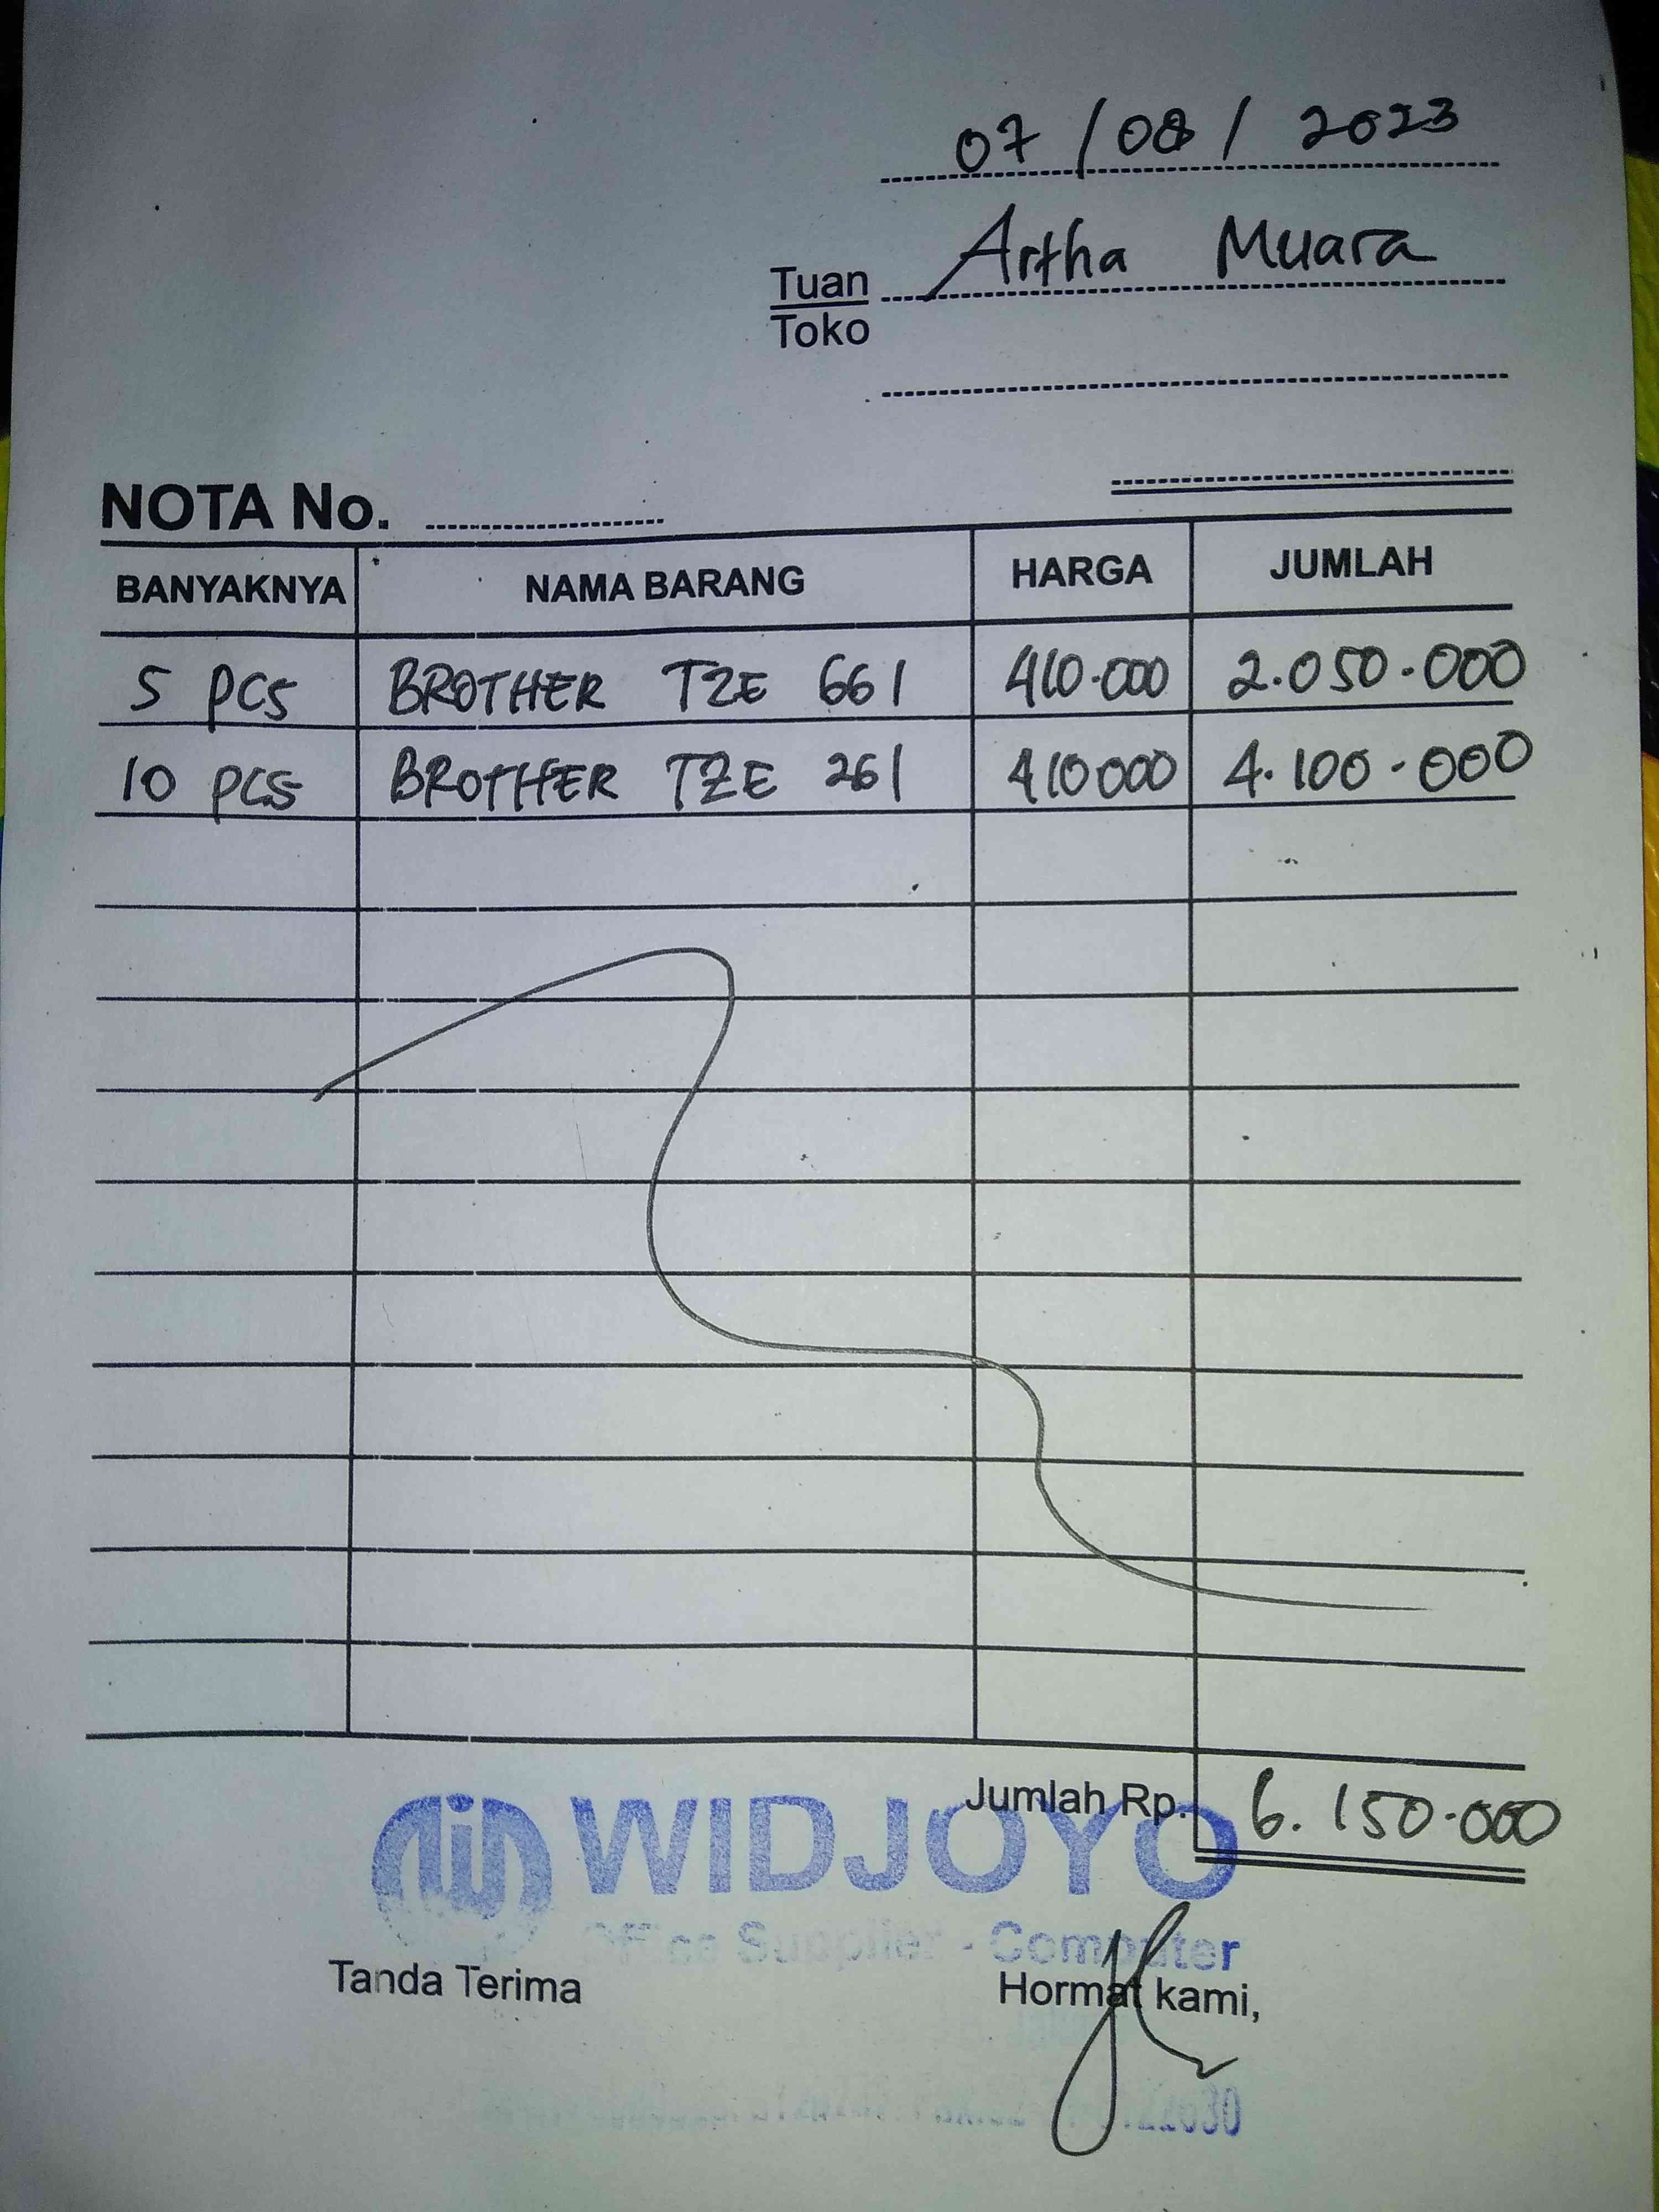 07 / 08 / 2023
Tuan Artha Muara
Toko
NOTA No.
BANYAKNYA NAMA BARANG HARGA JUMLAH
5 pcs BROTHER TZE 661 410.000 2.050.000
10 pcs BROTHER TZE 261 410000 4.100.000
Jumlah Rp. 6.150.000
WIDJOYO
Office Supplier - Computer
Tanda Terima Hormat kami,